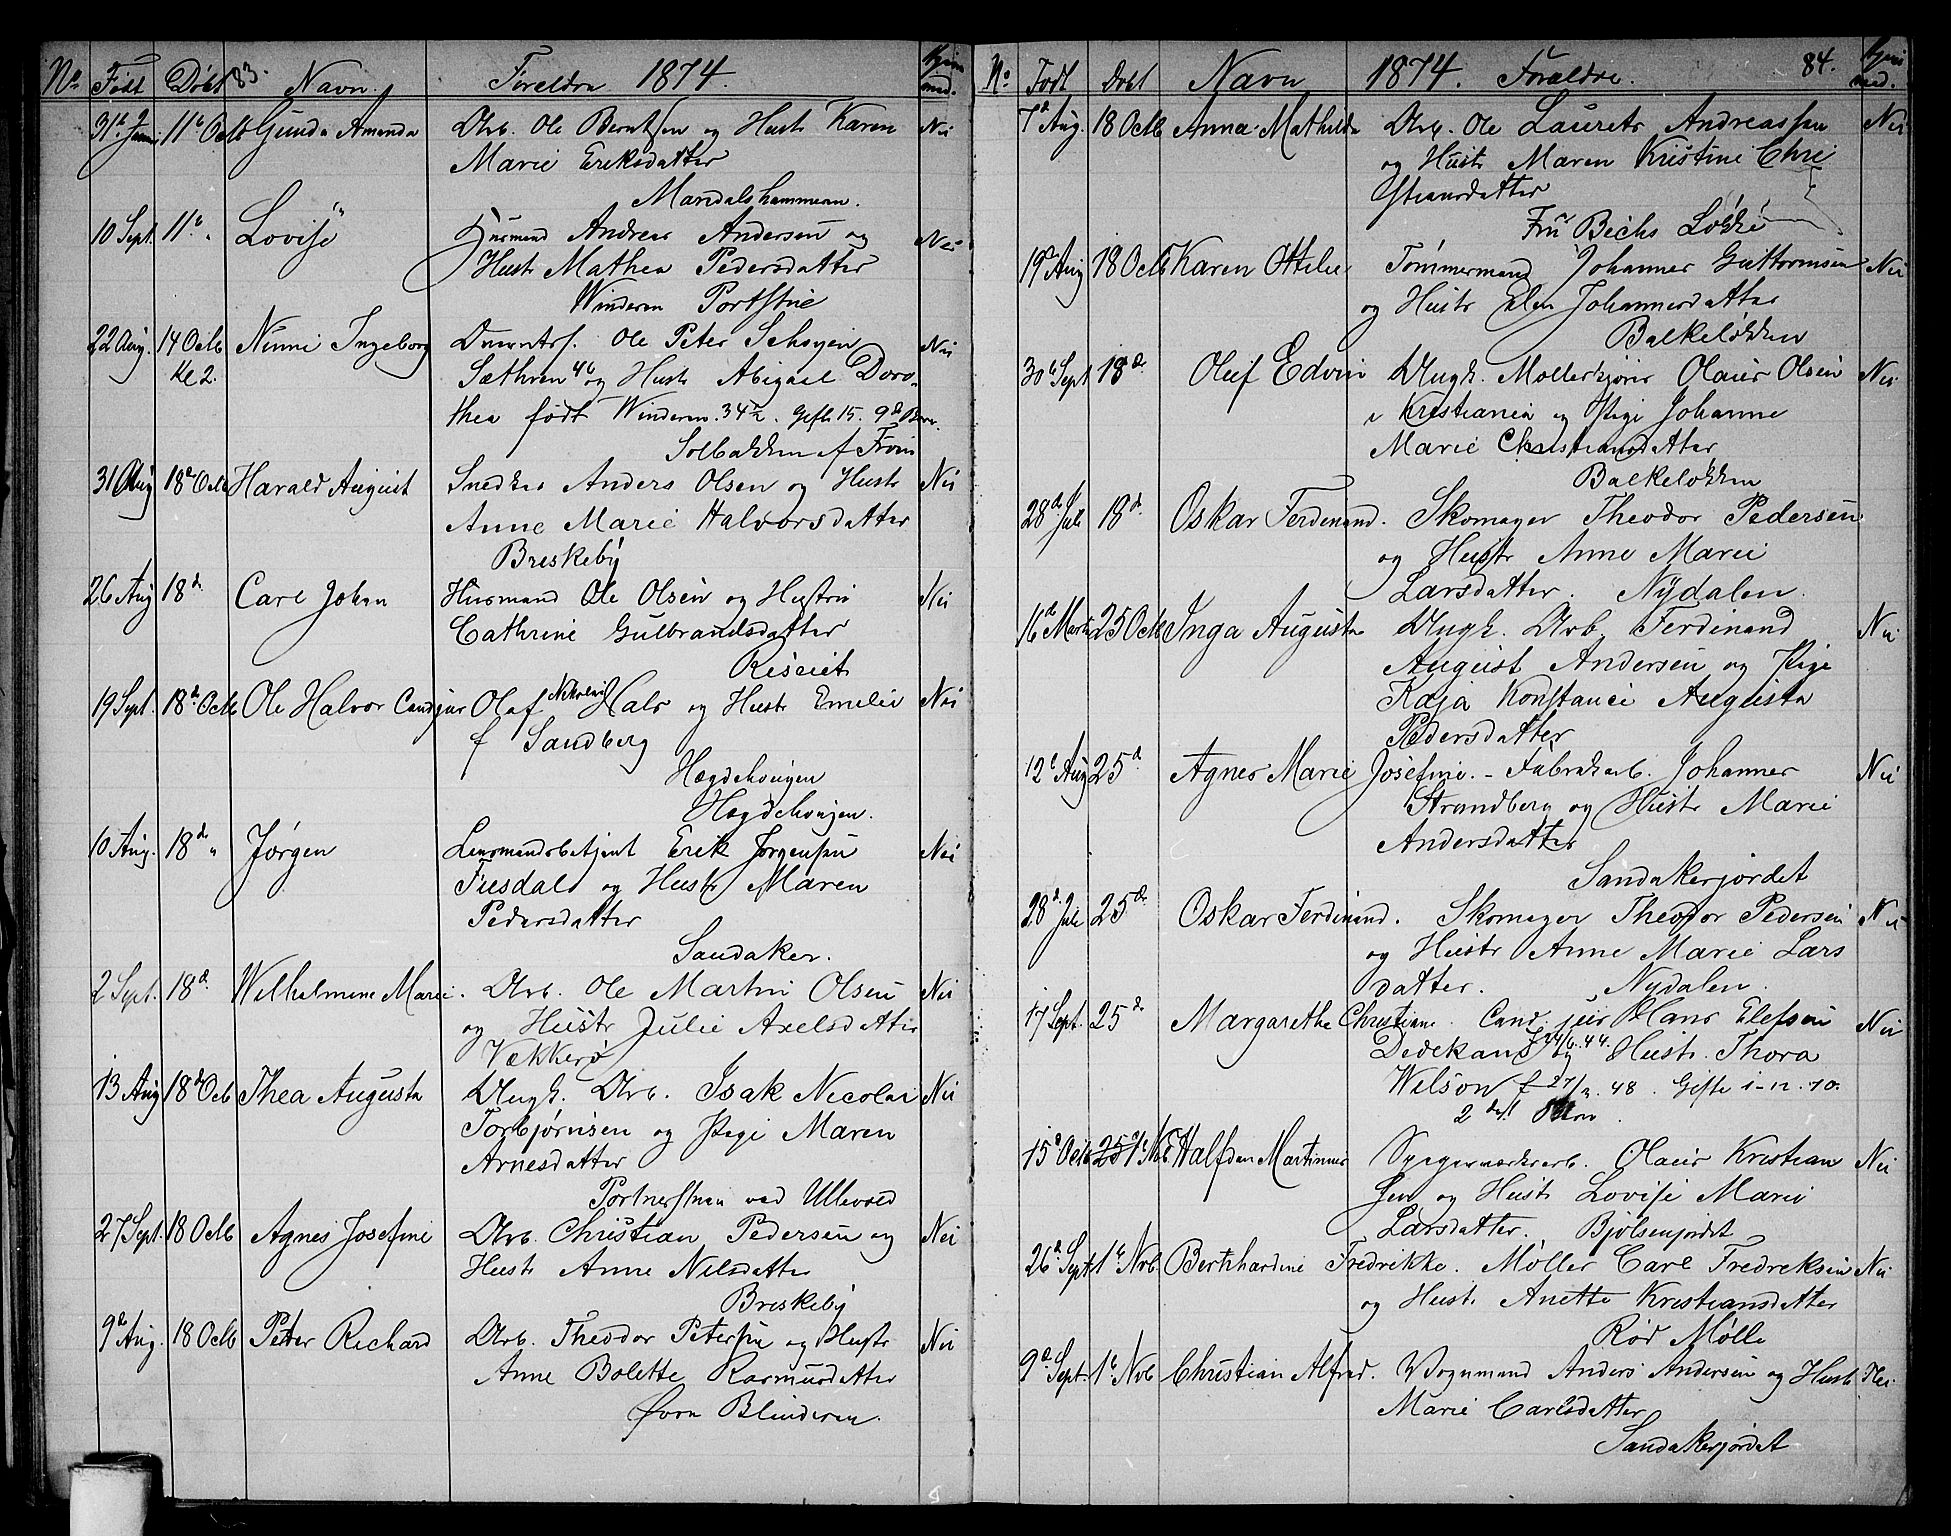 No Født Døbt 83. Navn. Foreldre 1874. Hjem med.
31te Juni 11te Octb Gunda Amanda Arb. Ole Berntsen og Hustr Karen Nei
Marie Eriksdatter
Maridalshammeren.
10 Sept. 11te " Lovise Husmand Andreas Andersen og Nei
Hustr Mathea Pedersdatter
Winderen Portstue
22 Aug. 14 Octb Ninni Ingeborg Ole Peter Schøyen Nei
Kl 2. Sæthren 46 og Hustr Abigael Doro-
thea født Winderen. 34 1/2. Gift 15. 9de Barn.
Solbakken af Frøen
31 Aug 18de Octb Harald August Snedker Anders Olsen og Hustr Nei
Anne Marie Halvorsdatter
Breskeby
26 Aug 18de Carl Johan Husmand Ole Olsen og Hustru Nei
Cathrine Gulbrandsdatter
Riseiet
19 Sept. 18de Octb Ole Halvor Candjur Olaf Nikolai Hals og Hustr Emelie Nei
f Sandberg
Hægdehougen
Hægdehougen.
10 Aug. 18de " Jørgen Lensmandsbetjent Erik Jørgensen Nei
Fuesdal og Hustr Maren
Pedersdatter
Sandaker.
2 Sept. 18de Wilhelmine Marie. Arb. Ole Martin Olsen Nei
og Hustr Julie Axelsdatter
Vækkerø
13 Aug 18de Octb Thea Augusta Ungk. Arb. Isak Nicolai Nei
Torbjørnsen og Pige Maren
Arnesdatter
Portnerstuen ved Ullevold
27 Sept. 18 Octb Agnes Josefine Arb. Christian Pedersen og Nei
Hustr Anne Nilsdatter
Breskeby
9de Aug. 18 Octb Peter Richard Arb. Theodor Petersen og Hustr Nei
Anne Bolette Rasmusdatter
Øvre Blinderen.
No Født Døbt Navn 1874. Forældre. 84. Hjem med.
7de Aug. 18 Octb Anna Mathilde Arb. Ole Laurits Andreassen Nei
og Hustr Maren Kristine Chri
stiansdatter
Fru Bechs Løkke
19de Aug 18 Octb Karen Ottilie Tømmermand Johannes Guttormsen Nei
og Hustr Elen Johannesdatter
Balkeløkken
30te Sept 18de Oluf Edvin Ungk. Møllerkjører Olaus Olsen Nei
i Kristiania og Pige Johanne
Marie Christiansdatter
Balkeløkken
28de Juli 18de Oskar Ferdinand. Skomager Theodor Pedersen
og Hustr Anne Marie
Larsdatter. Nydalen.
16de Marts 25 Octb Inga Augusta Ungk. Arb. Ferdinand Nei
August Andersen og Pige
Kaja Konstance Augusta
Pedersdatter
12te Aug 25de Agnes Marie Josefine. - Fabrikarb. Johannes Nei
Strandberg og Hustr Marie
Andersdatter
Sandakerjordet
28de Juli 25de Oskar Ferdinand. Skomager Theodor Pedersen Nei
og Hustr Anne Marie Lars
datter. Nydalen.
17 Sept. 25de Margarethe Christiane. Cand. jur Hans Elefsen Nei
44. og Hustr. Thora
Wilson f 27/2. 48. Gifte 1-12-70.
2det Barn.
15de Octb 25 1te Nvb. Halfdan Martinius Spigerværksarb. Olaus Kristian Nei
sen og Hustr Lovise Marie
Larsdatter. Bjølsenjordet
26de Sept. 1te Nvb. Bernhardine Fredrikke. Møller Carl Fredriksen Nei
og Hustr Anette Kristiansdatter
Rød Mølle
9de Sept. 1te Nvb Christian Alfred. Vognmand Anders Andersen og Hustr Nei
Marie Carlsdatter
Sandakerjordet